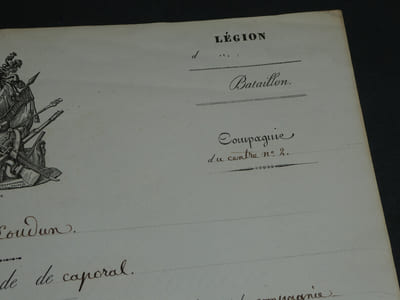 LÉGION
d
Bataillon.
Compagnie
du centre nº 2.
Coudun.
de de caporal.
compagnie